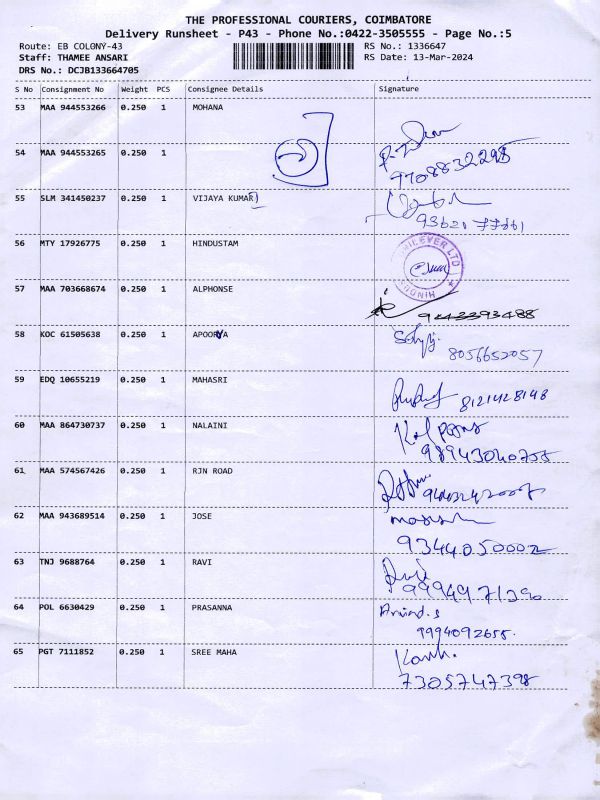 THE PROFESSIONAL COURIERS, COIMBATORE
Delivery Runsheet - P43 - Phone No.:0422-3505555 - Page No.:5
Route: EB COLONY-43 RS No.: 1336647
Staff: THAMEE ANSARI RS Date: 13-Mar-2024
DRS No.: DCJB133664705
S No Consignment No Weight PCS Consignee Details Signature
53 MAA 944553266 0.250 1 MOHANA
54 MAA 944553265 0.250 1
9708832295
55 SLM 341450237 0.250 1 VIJAYA KUMAR
56 MTY 17926775 0.250 1 HINDUSTAM
57 MAA 703668674 0.250 1 ALPHONSE
9443393488
58 KOC 61505638 0.250 1 APOORVA
8056652057
59 EDQ 10655219 0.250 1 MAHASRI
8121428148
60 MAA 864730737 0.250 1 NALAINI
98943040755
61 MAA 574567426 0.250 1 RJN ROAD
62 MAA 943689514 0.250 1 JOSE
9344050002
63 TNJ 9688764 0.250 1 RAVI
Ravi
9994971390
64 POL 6630429 0.250 1 PRASANNA
Arvind.s
9994092655.
65 PGT 7111852 0.250 1 SREE MAHA
7305747398